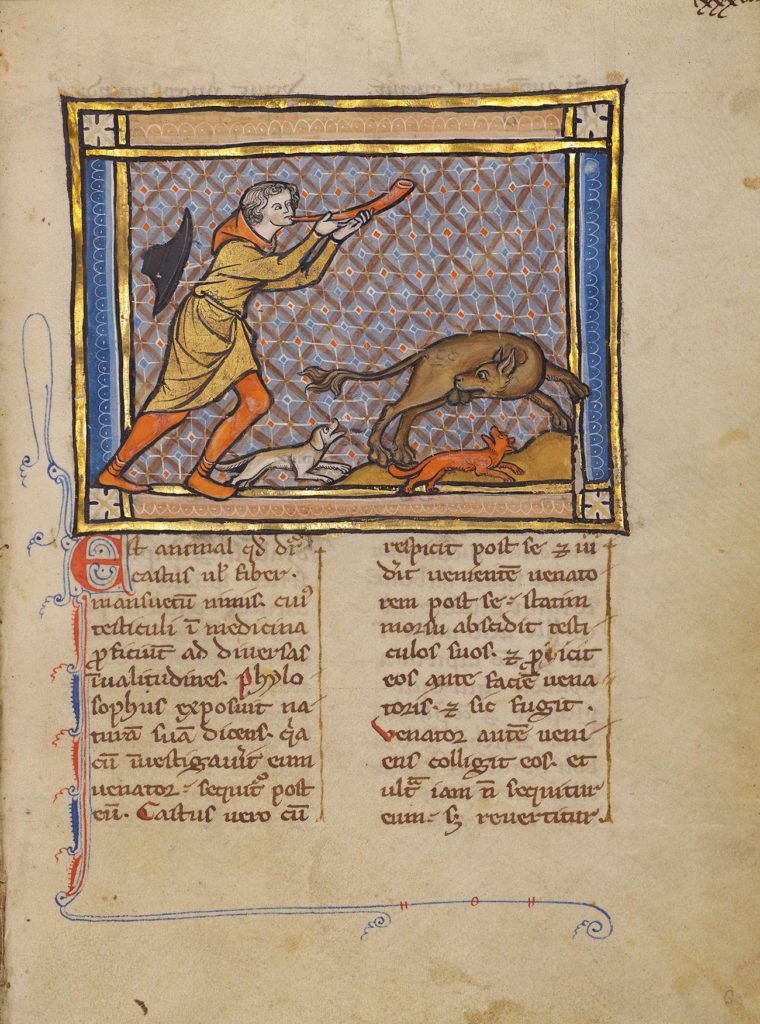 Est animal qđ dr̄
castus ul' fiber.
mansuetū nimis. cui⁹
testiculi ī medicina
ꝓficiūt ad diversas
īvalitudines. phylo
sophus exposuit na
turā suā dicens. q̄a
cū īvestigaṽit eum
venator. sequit᷑ post
eū. Castus vero cū
respicit post se ⁊ vi
dīt venientē venato
rem post se. statim
morsu abscidit testi
culos suos. ⁊ ꝓicit
eos ante faciē vena
toris. ⁊ sic fugit.
Venator autē veni
ens colligit eos. et
ultͣ iam n̄ sequitur
eum. sꝫ revertitur.